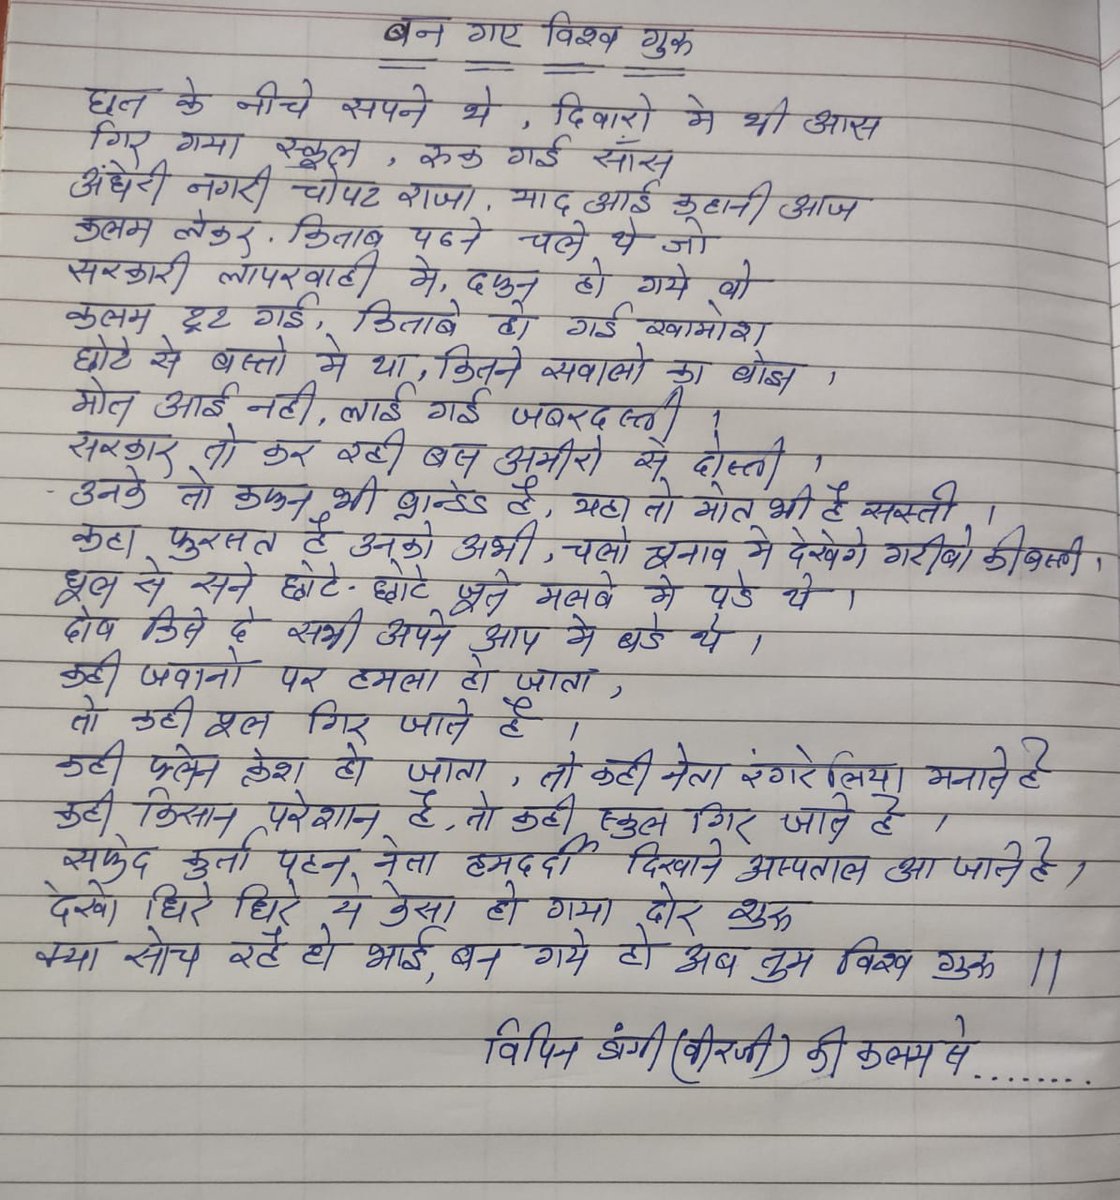 बन गए विश्व गुरू
छत के नीचे सपने थे , दिवारो मे थी आस
गिर गया स्कूल , रूक गई साँस
अंधेरी नगरी चोपट राजा . याद आई कहानी आज
कलम लेकर . किताब पढने चले थे जो
सरकारी लापरवाही मे, दफन हो गये वो
कलम टूट गई , किताबे हो गई खामोश
छोटे से बस्तो मे था , कितने सवालो का बोझ ।
मोत आई नही , लाई गई जबरदस्ती ।
सरकार तो कर रही बस अमीरो से दोस्ती ।
उनके तो कफन भी ब्रान्डेड है , यहा तो मोत भी है सस्ती ।
कहा फुरसत है उनको अभी , चलो चुनाव मे देखेगे गरीबो की बस्ती ।
धूल से सने छोटे - छोटे जूते मलबे मे पडे थे ।
दोष किसे दे सभी अपने आप मे बडे थे ।
कही जवानो पर हमला हो जाता ,
तो कही पूल गिर जाते है ।
कही प्लेन क्रेश हो जाता , तो कही नेता रंगरेलिया मनाते है
कही किसान परेशान है , तो कही स्कुल गिर जाते है ।
सफेद कुर्ता पहन नेता हमदर्दी दिखाने अस्पताल आ जाते है ,
देखो धिरे धिरे ये केसा हो गया दोर शुरू
क्या सोच रहे हो भाई , बन गये हो अब तुम विश्व गुरू ॥
विपिन डांगी (वीरजी) की कलम से ........